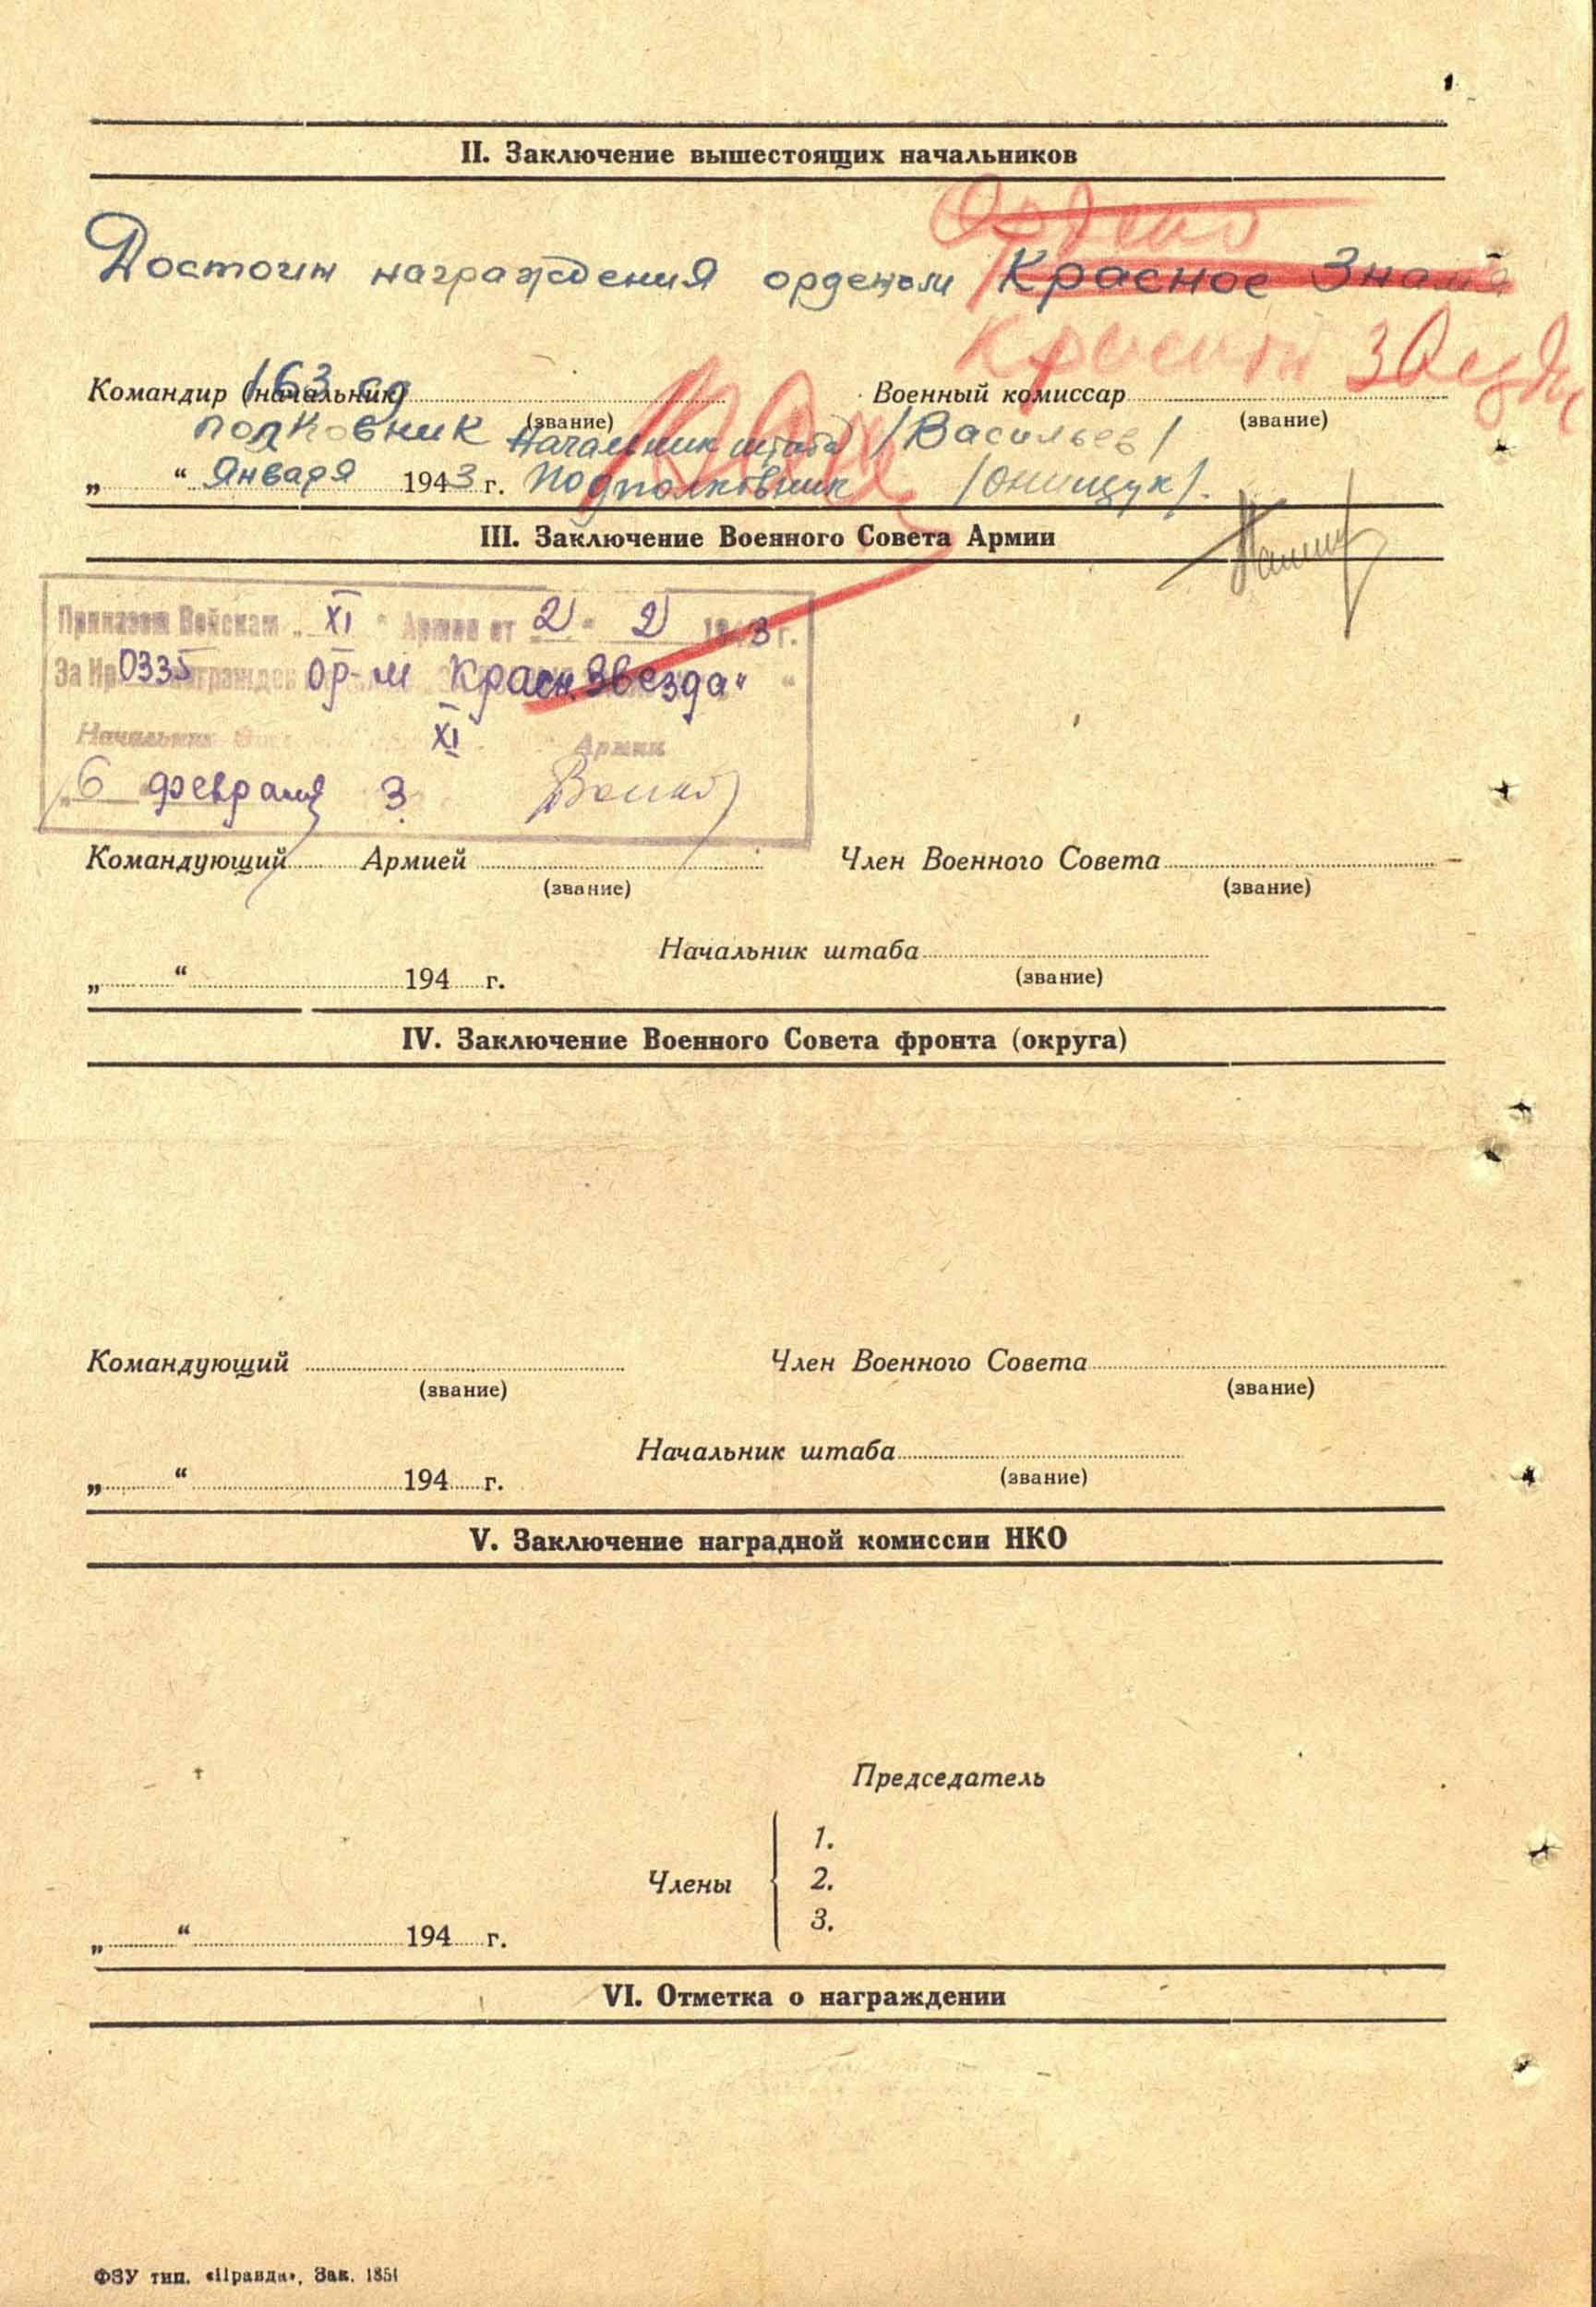 II. Заключение вышестоящих начальников
Ордена
Достоин награждения орденом Красное Знамя
Красной Звезды
Командир (начальник) 163 сд Военный комиссар
(звание) (звание)
полковник /Васильев/
Начальник штаба
„ “ Января 1943 г. Подполковник /Онищук/.
III. Заключение Военного Совета Армии
Приказом Войскам „XI“ Армии от „2“ 2 1943 г.
За № 0335 награжден ор-м Красн. Звезда“
Начальник XI Армии
„6 февраля 3
Командующий Армией Член Военного Совета
(звание) (звание)
Начальник штаба
(звание)
„ “ 194 г.
IV. Заключение Военного Совета фронта (округа)
Командующий Член Военного Совета
(звание) (звание)
Начальник штаба
(звание)
„ “ 194 г.
V. Заключение наградной комиссии НКО
Председатель
1.
Члены 2.
3.
„ “ 194 г.
VI. Отметка о награждении
ФЗУ тип. «Правды», Зак. 1851